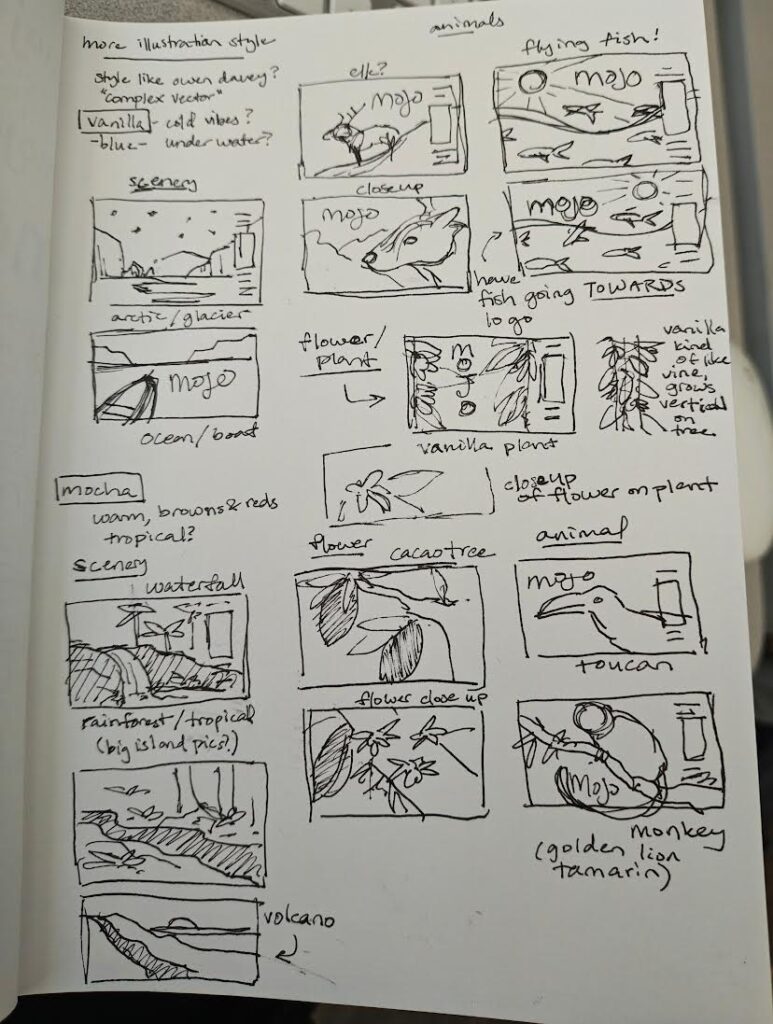 more illustration style
style like owen davey?
"complex vector"
vanilla - cold vibes?
-blue- under water?
scenery
arctic/glacier
mojo
ocean/boast
animals
elk?
mojo
closeup
mojo
flying fish!
mojo
mojo
have
fish going TOWARDS
logo
flower/
plant
mojo
vanilla plant
vanilla
kind
of like
vine,
grows
vertical
on
tree
closeup
of flower on plant
mocha
warm, browns & reds
tropical?
scenery
waterfall
rainforest/tropical
(big island pics?)
volcano
flower
cacao tree
flower close up
animal
mojo
toucan
Mojo
monkey
(golden lion
tamarin)